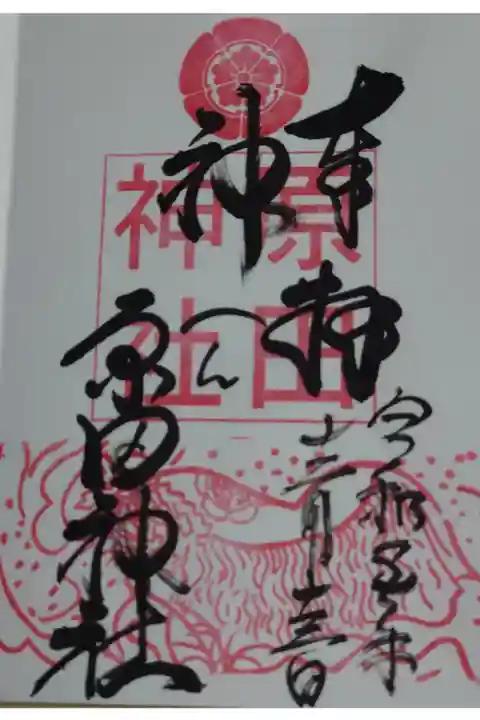 奉拝
令和五年
十二月十三日
神
へん
原田神社
原田
神社